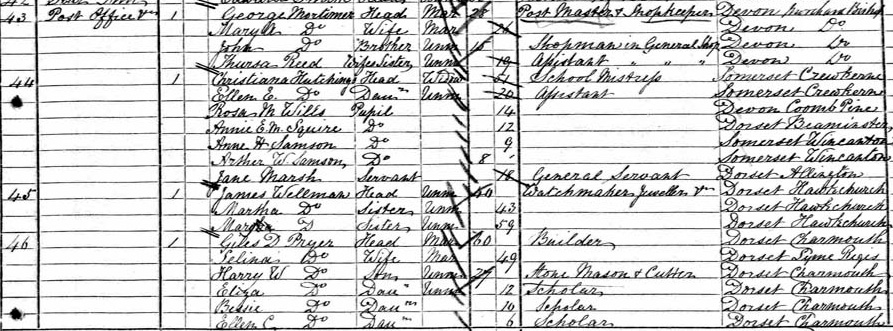 43 Post Office 1 George Mortimer Head Mar 28 Post Master & Shopkeeper Devon Bishop
Mary Do Wife Mar 26 Devon Do
John Do Brother Unm 15 Shopman in General Shop Devon Do
Thursa Reed Wifes Sister Unm 19 Assistant " " " Devon Do
44 1 Christiana Hutchings Head Widow 51 School Mistress Somerset Crewkerne
Ellen E. Do Daur Unm 20 Assistant Somerset Crewkerne
Rosa M Wills Pupil 14 Devon Coomb Pine
Annie E. M. Squire Do 12 Dorset Beaminster
Anne H Samson Do 9 Somerset Wincanton
Arther W Samson Do 8 Somerset Wincanton
Jane Marsh Servant 18 General Servant Dorset Allington
45 1 James Wellman Head Unm 50 Watchmaker Jeweller Dorset Hawkchurch
Martha Do Sister Unm 43 Dorset Hawkchurch
D Sister Unm 59 Dorset Hawkchurch
46 1 Giles D Pryer Head Mar 60 Builder Dorset Charmouth
Selina Do Wife Mar 49 Dorset Lyme Regis
Harry W Do Son Unm 27 Stone Mason & Cutter Dorset Charmouth
Eliza Do Daur Unm 12 Scholar Dorset Charmouth
Bessie Do Daur 10 Scholar Dorset Charmouth
Ellen C. Do Daur 6 Scholar Dorset Charmouth